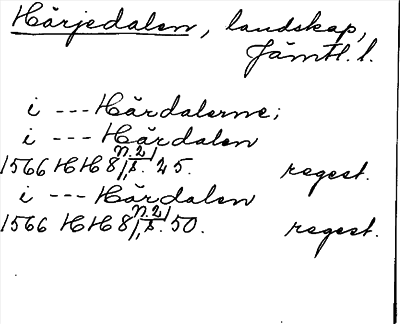 Härjedalen, landskap,
Jämtl. l.
i --- Härdalerne;
i --- Härdalen
1566 HH 8, n. 2, s. 45. regest.
i --- Härdalen
1566 HH 8, n. 2, s. 50. regest.